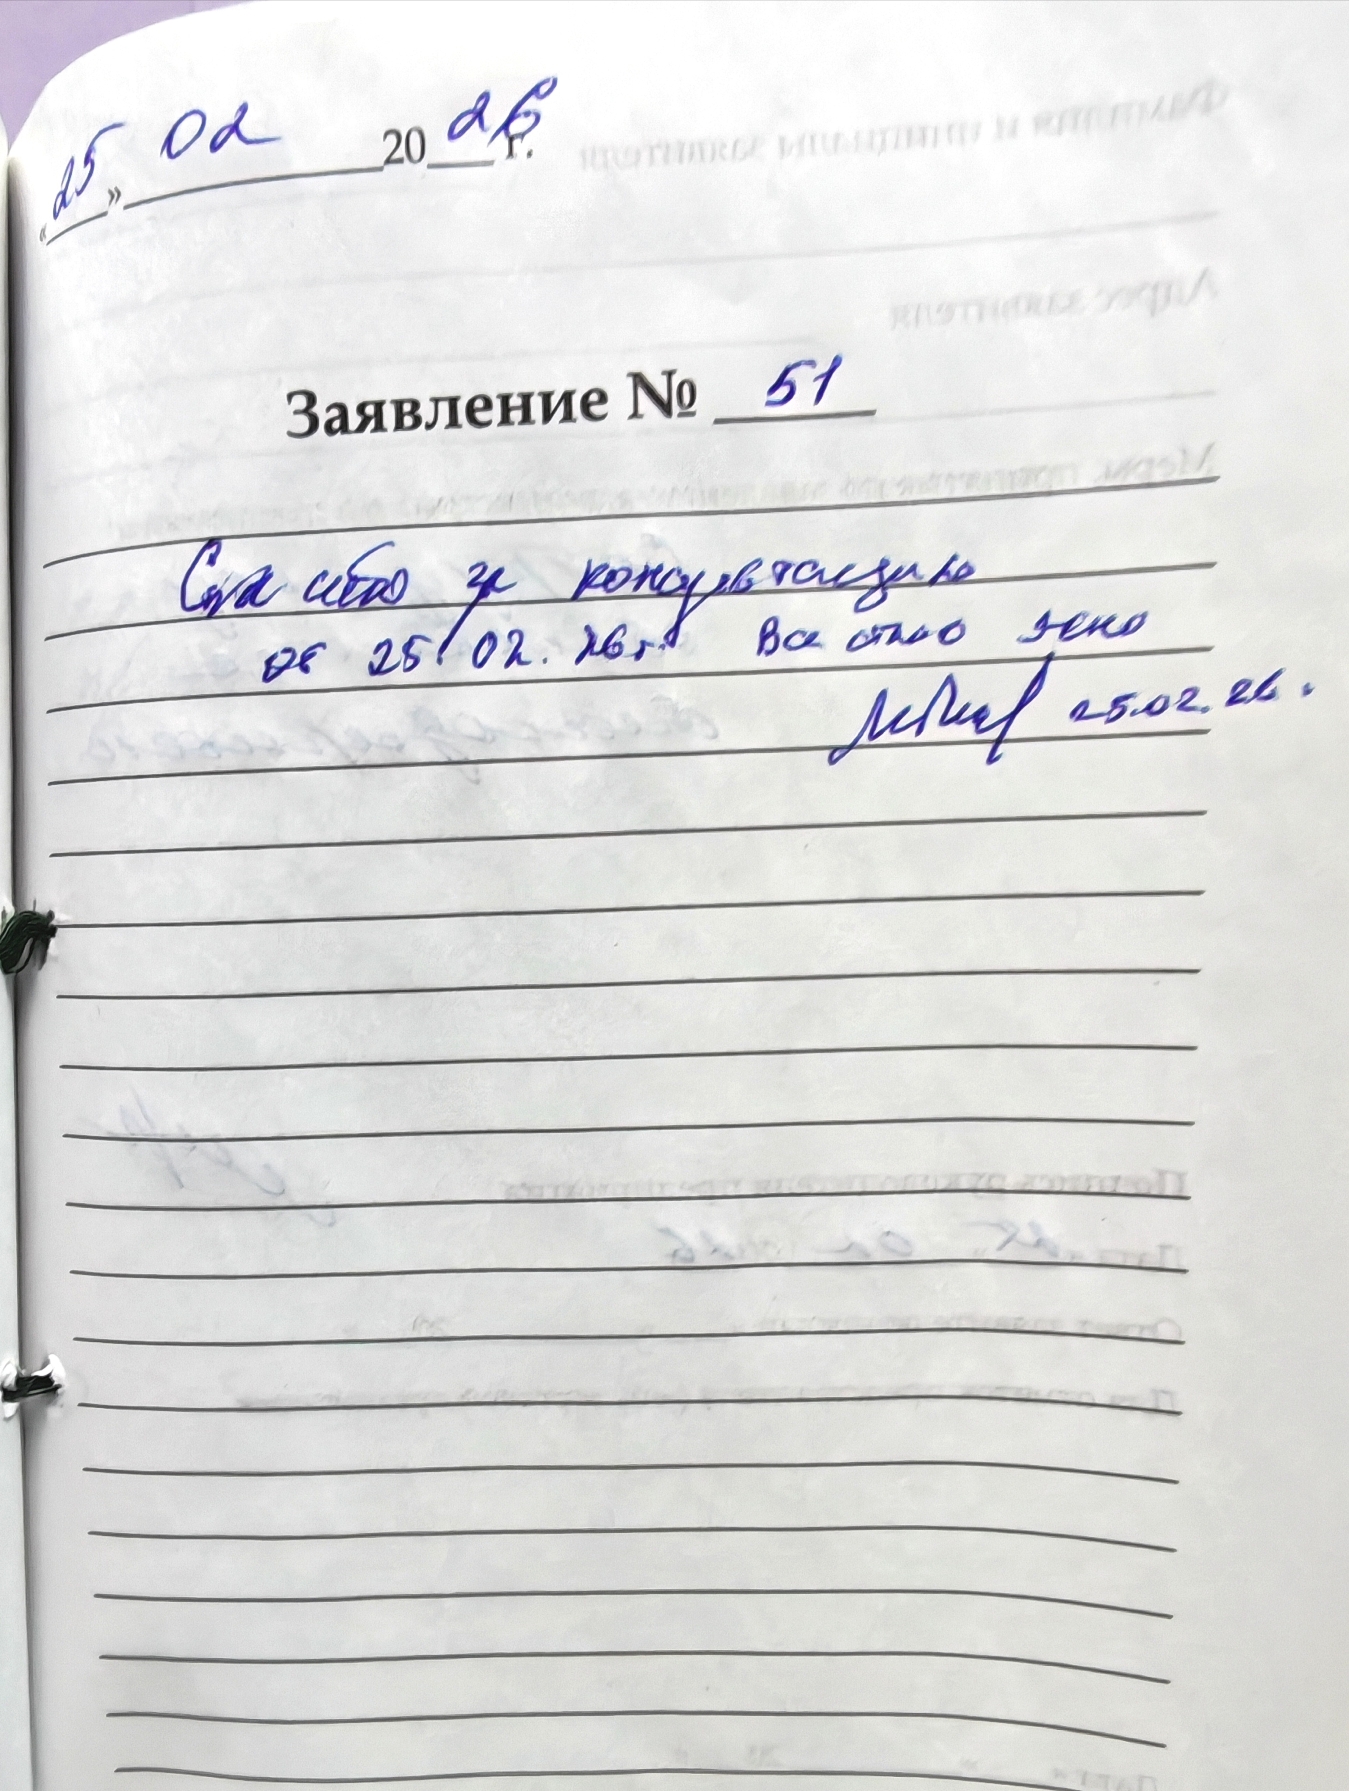 «25» 02 2026 г.
Заявление № 51
Спасибо за консультацию
от 25.02.26 г. Все стало ясно
25.02.26.